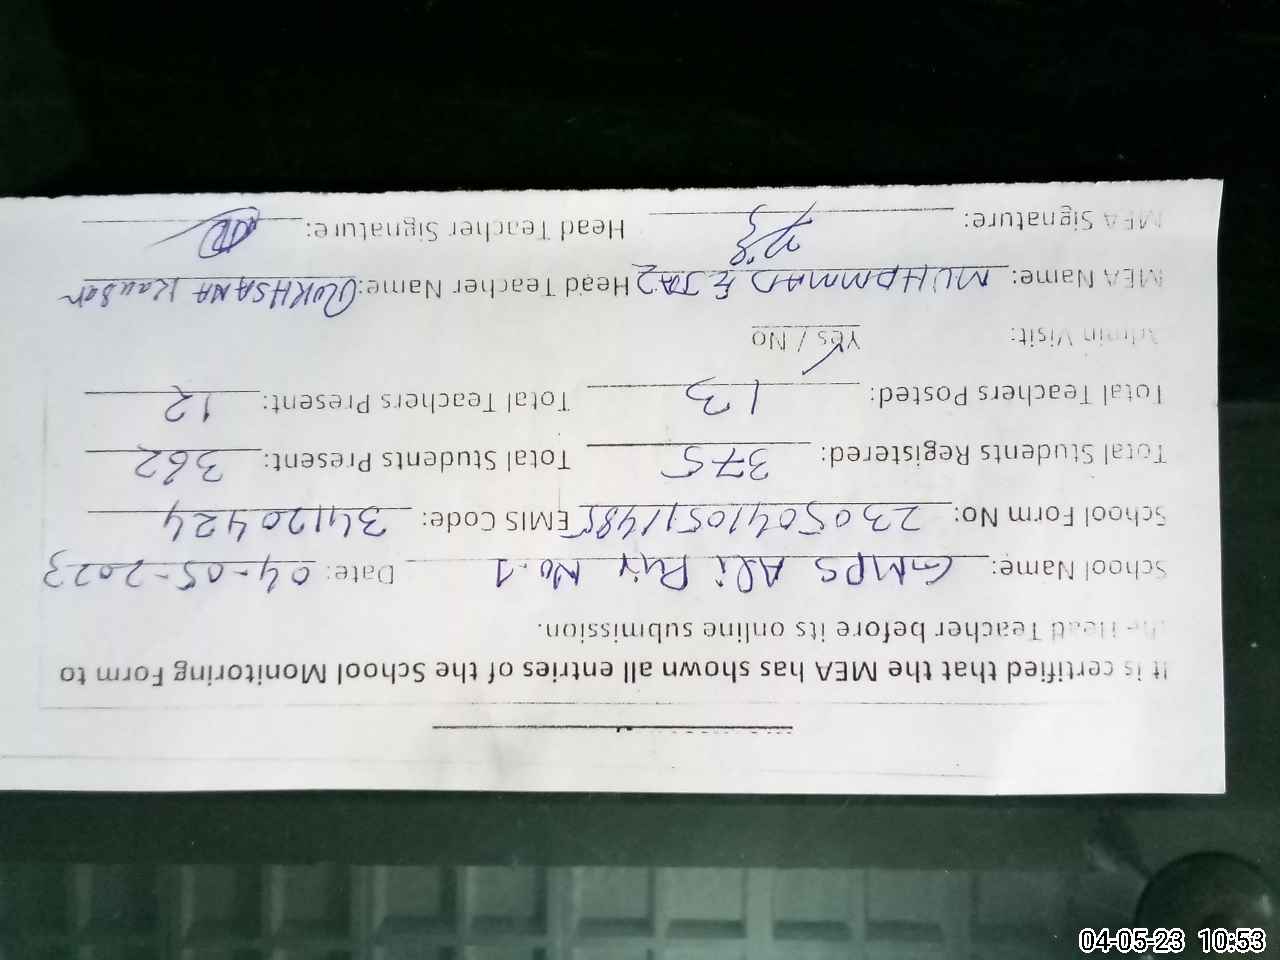 It is certified that the MEA has shown all entries of the School Monitoring Form to
the Head Teacher before its online submission.
School Name: GMPS Ali Pur No.1 Date: 04-05-2023
School Form No: 23050410511485 EMIS Code: 34120424
Total Students Registered: 375 Total Students Present: 362
Total Teachers Posted: 13 Total Teachers Present: 12
Admin Visit: Yes / No
MEA Name: MUHAMMAD EJAZ Head Teacher Name: RUKHSANA Kausar
MEA Signature: Head Teacher Signature:
04-05-23 10:53